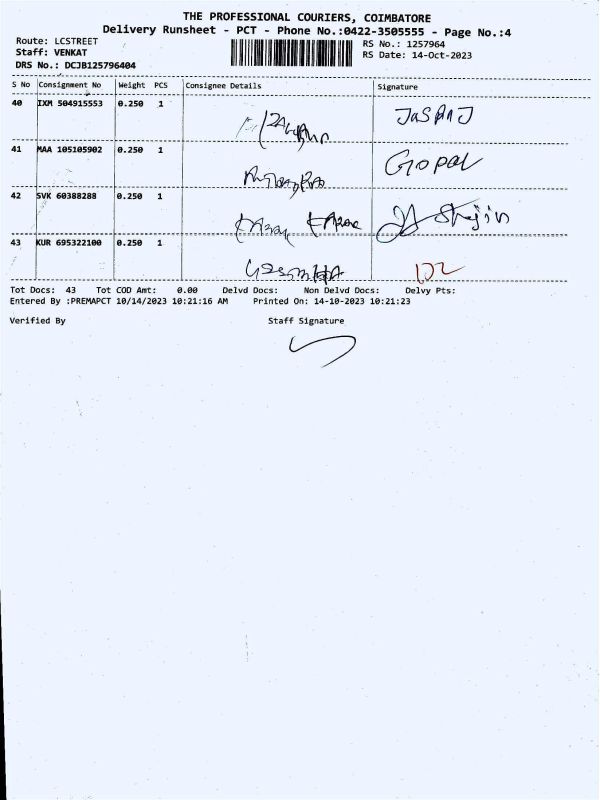 THE PROFESSIONAL COURIERS, COIMBATORE
Delivery Runsheet - PCT - Phone No.:0422-3505555 - Page No.:4
Route: LCSTREET
RS No.: 1257964
Staff: VENKAT
RS Date: 14-Oct-2023
DRS No.: DCJB125796404
S No Consignment No Weight PCS Consignee Details Signature
40 IXM 504915553 0.250 1 JASPAJ
41 MAA 105105902 0.250 1 GOPAL
42 SVK 60388288 0.250 1 Stejin
43 KUR 695322100 0.250 1
Tot Docs: 43 Tot COD Amt: 0.00 Delvd Docs: Non Delvd Docs: Delvy Pts:
Entered By :PREMAPCT 10/14/2023 10:21:16 AM Printed On: 14-10-2023 10:21:23
Verified By Staff Signature